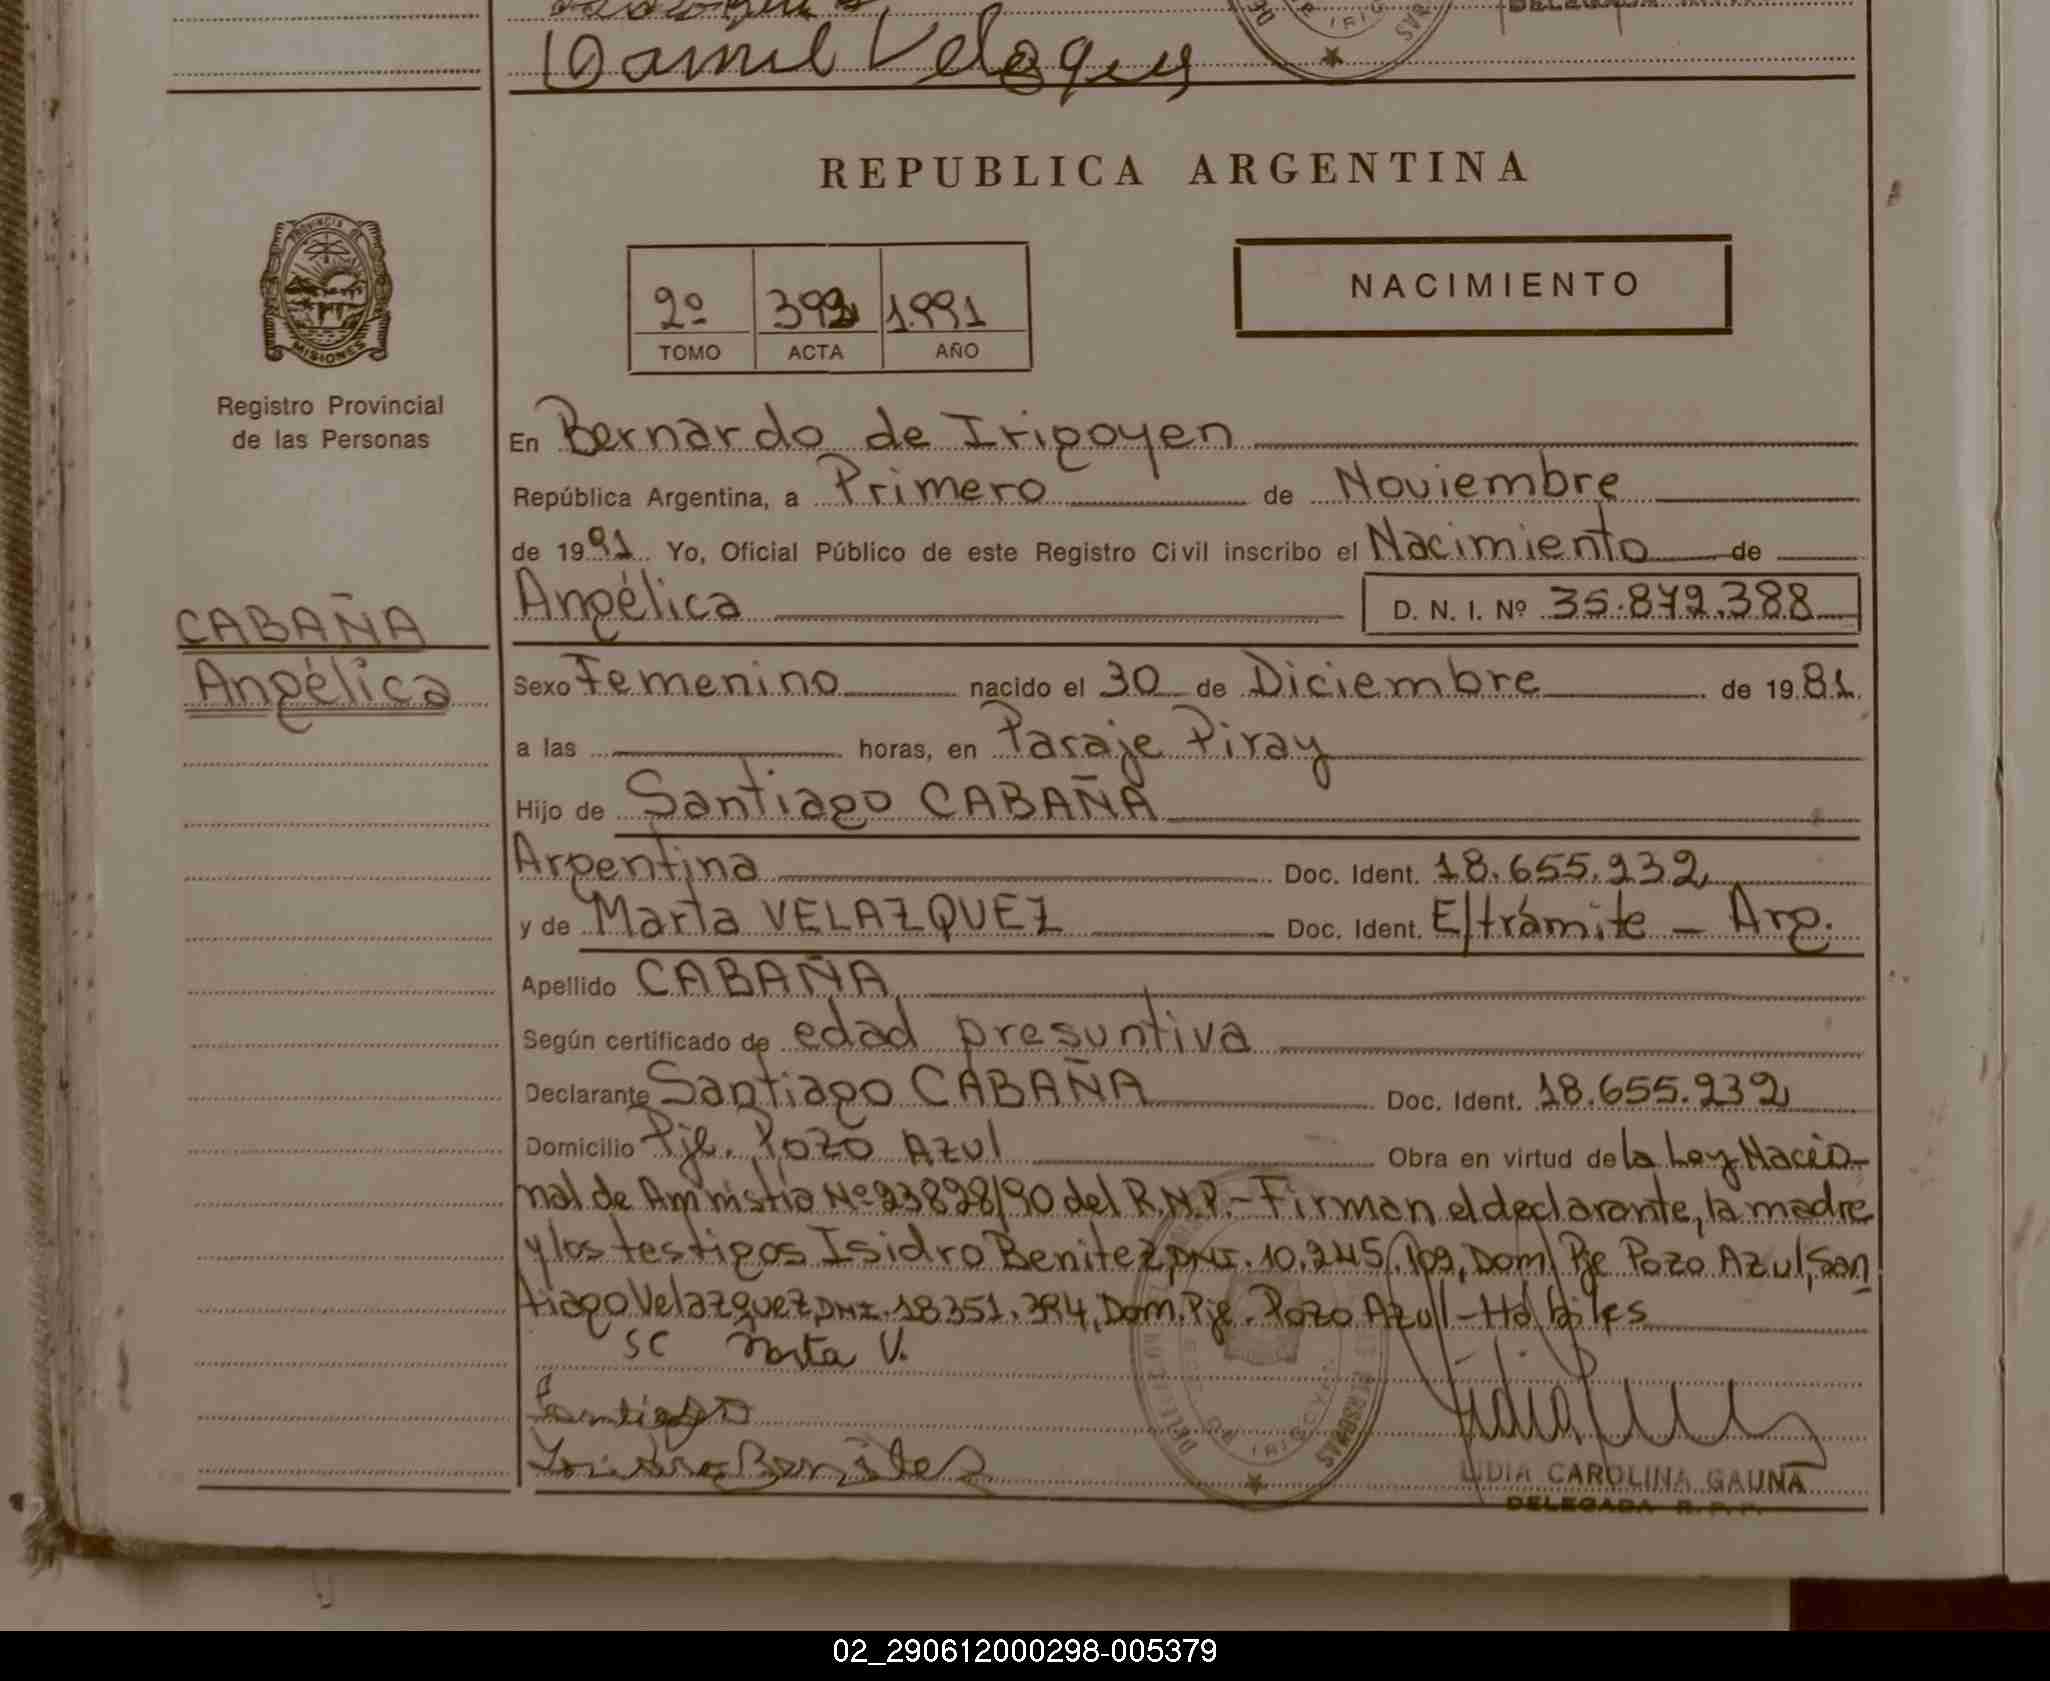 Daniel Velasques
REPUBLICA ARGENTINA
PROVINCIA DE MISIONES
NACIMIENTO
2º 392 1.991
TOMO ACTA AÑO
Registro Provincial
de las Personas
En Bernardo de Irigoyen
República Argentina, a Primero de Noviembre
de 1991 Yo, Oficial Público de este Registro Civil inscribo el Nacimiento de
Angélica D. N. I. Nº 35.872.388
CABAÑA
Angélica
Sexo Femenino nacido el 30 de Diciembre de 1981
a las horas, en Paraje Piray
Hijo de Santiago CABAÑA
Argentina Doc. Ident. 18.655.232
y de Marta VELAZQUEZ Doc. Ident. E/trámite - Arg.
Apellido CABAÑA
Según certificado de edad presuntiva
Declarante Santiago CABAÑA Doc. Ident. 18.655.232
Domicilio Pje. Pozo Azul Obra en virtud de la Ley Nacio-
nal de Amnistia Nº 23828/90 del R.N.P.- Firman el declarante, la madre
y los testigos Isidro Benitez, DNI. 10.245.109, Dom. Pje Pozo Azul, San
tiago Velazquez, DNI. 18351.394, Dom. Pje. Pozo Azul - Hábiles
SC Marta V.
Santiago
Isidro Benitez
LIDIA CAROLINA GAUNA
DELEGADA R. P. P.
02_290612000298-005379